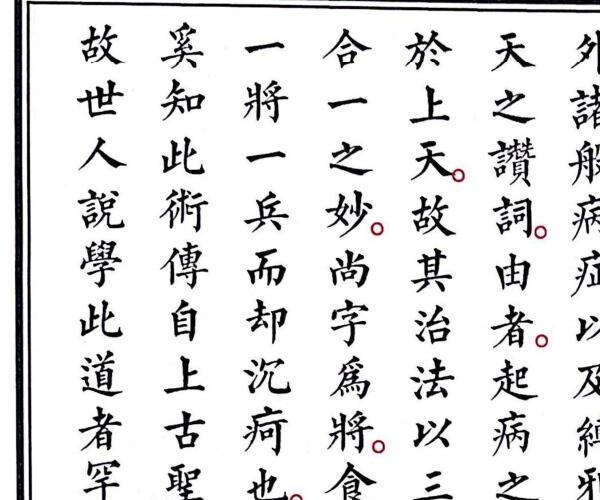 外諸般病症以及纏邪
天之讚詞。由者。起病之
於上天。故其治法以三
合一之妙。尚字爲將。食
一將一兵而却沉疴也。
奚知此術傳自上古聖
故世人說學此道者罕